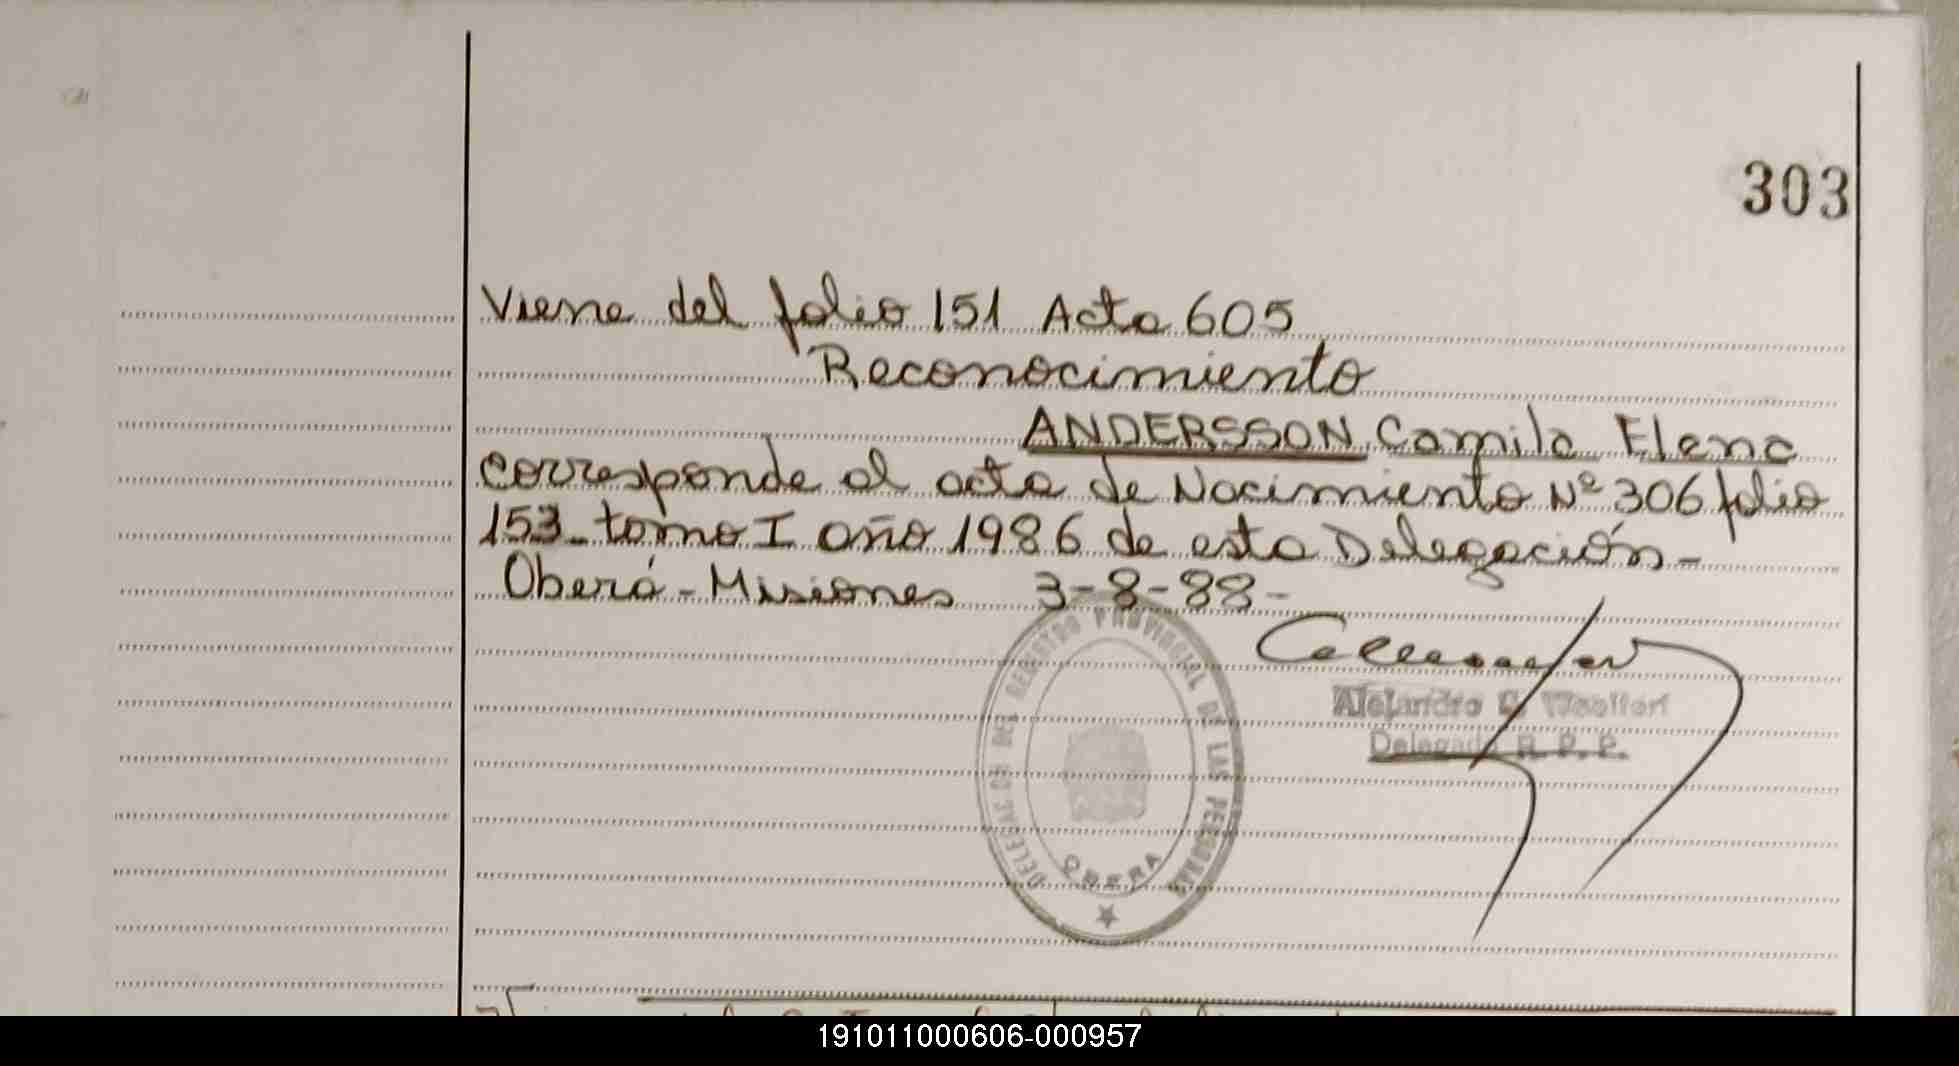 303
Viene del folio 151 Acta 605
Reconocimiento
ANDERSSON Camila Elena
corresponde al acta de Nacimiento Nº 306 folio
153 - tomo I año 1986 de esta Delegación -
Oberá - Misiones 3-8-88 -
Alejandro
Delegado R. P. P.
DELEGACION DEL REGISTRO PROVINCIAL DE LAS PERSONAS
OBERA
191011000606-000957